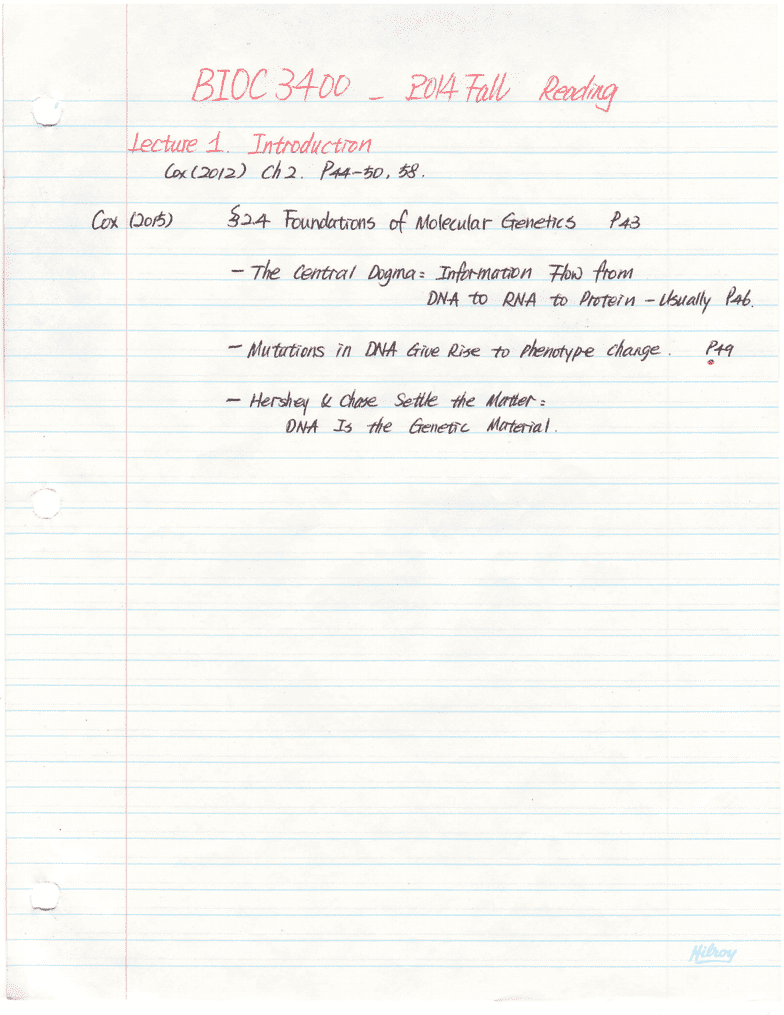 BIOC 3400 - 2014 Fall Reading
Lecture 1. Introduction
Cox (2012) Ch 2. P44-50, 58.
Cox (2015) §2.4 Foundations of Molecular Genetics P43
- The Central Dogma: Information Flow from
DNA to RNA to Protein - Usually P46.
- Mutations in DNA Give Rise to Phenotype change. P49
- Hershey & Chase Settle the Matter:
DNA Is the Genetic Material.
Hilroy